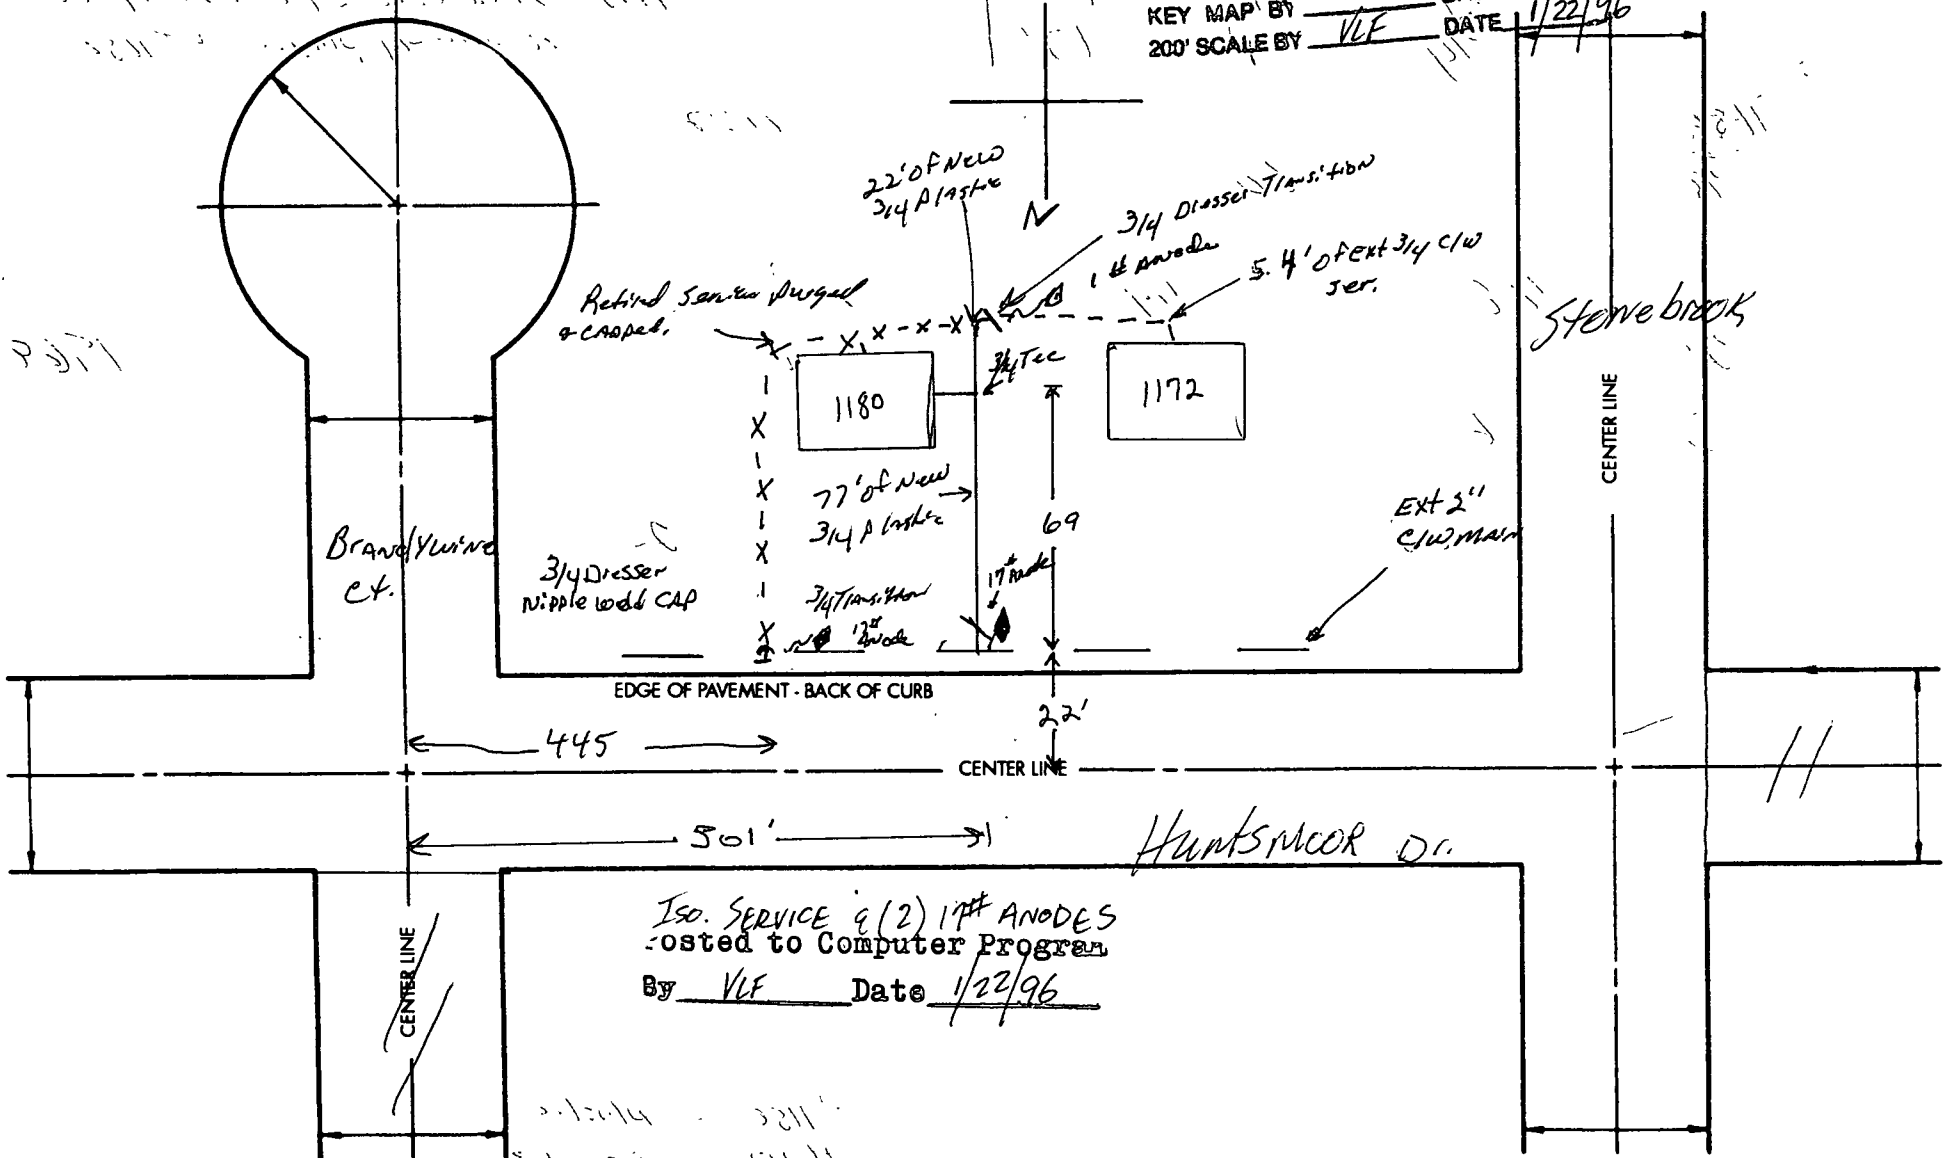 KEY MAP BY
200' SCALE BY VLF DATE 1/22/96
22' of New
3/4 Plastic
N
3/4 Dresser Transition
1 # Anode
5.4' of Ext 3/4 C/W
Ser.
Retired Service purged
& CAPPed.
Stonebrook
3/4 Tee
1180
1172
CENTER LINE
77' of New
3/4 Plastic
69
Ext 2"
C/W MAIN
BrANdYwiNe
Ct.
3/4 Dresser
Nipple weld CAP
17# Anode
3/4 Transition
17#
Anode
EDGE OF PAVEMENT - BACK OF CURB
22'
445
CENTER LINE
501'
HuntsMOOR Dr.
Iso. SERVICE & (2) 17# ANODES
osted to Computer Program
By VLF Date 1/22/96
CENTER LINE